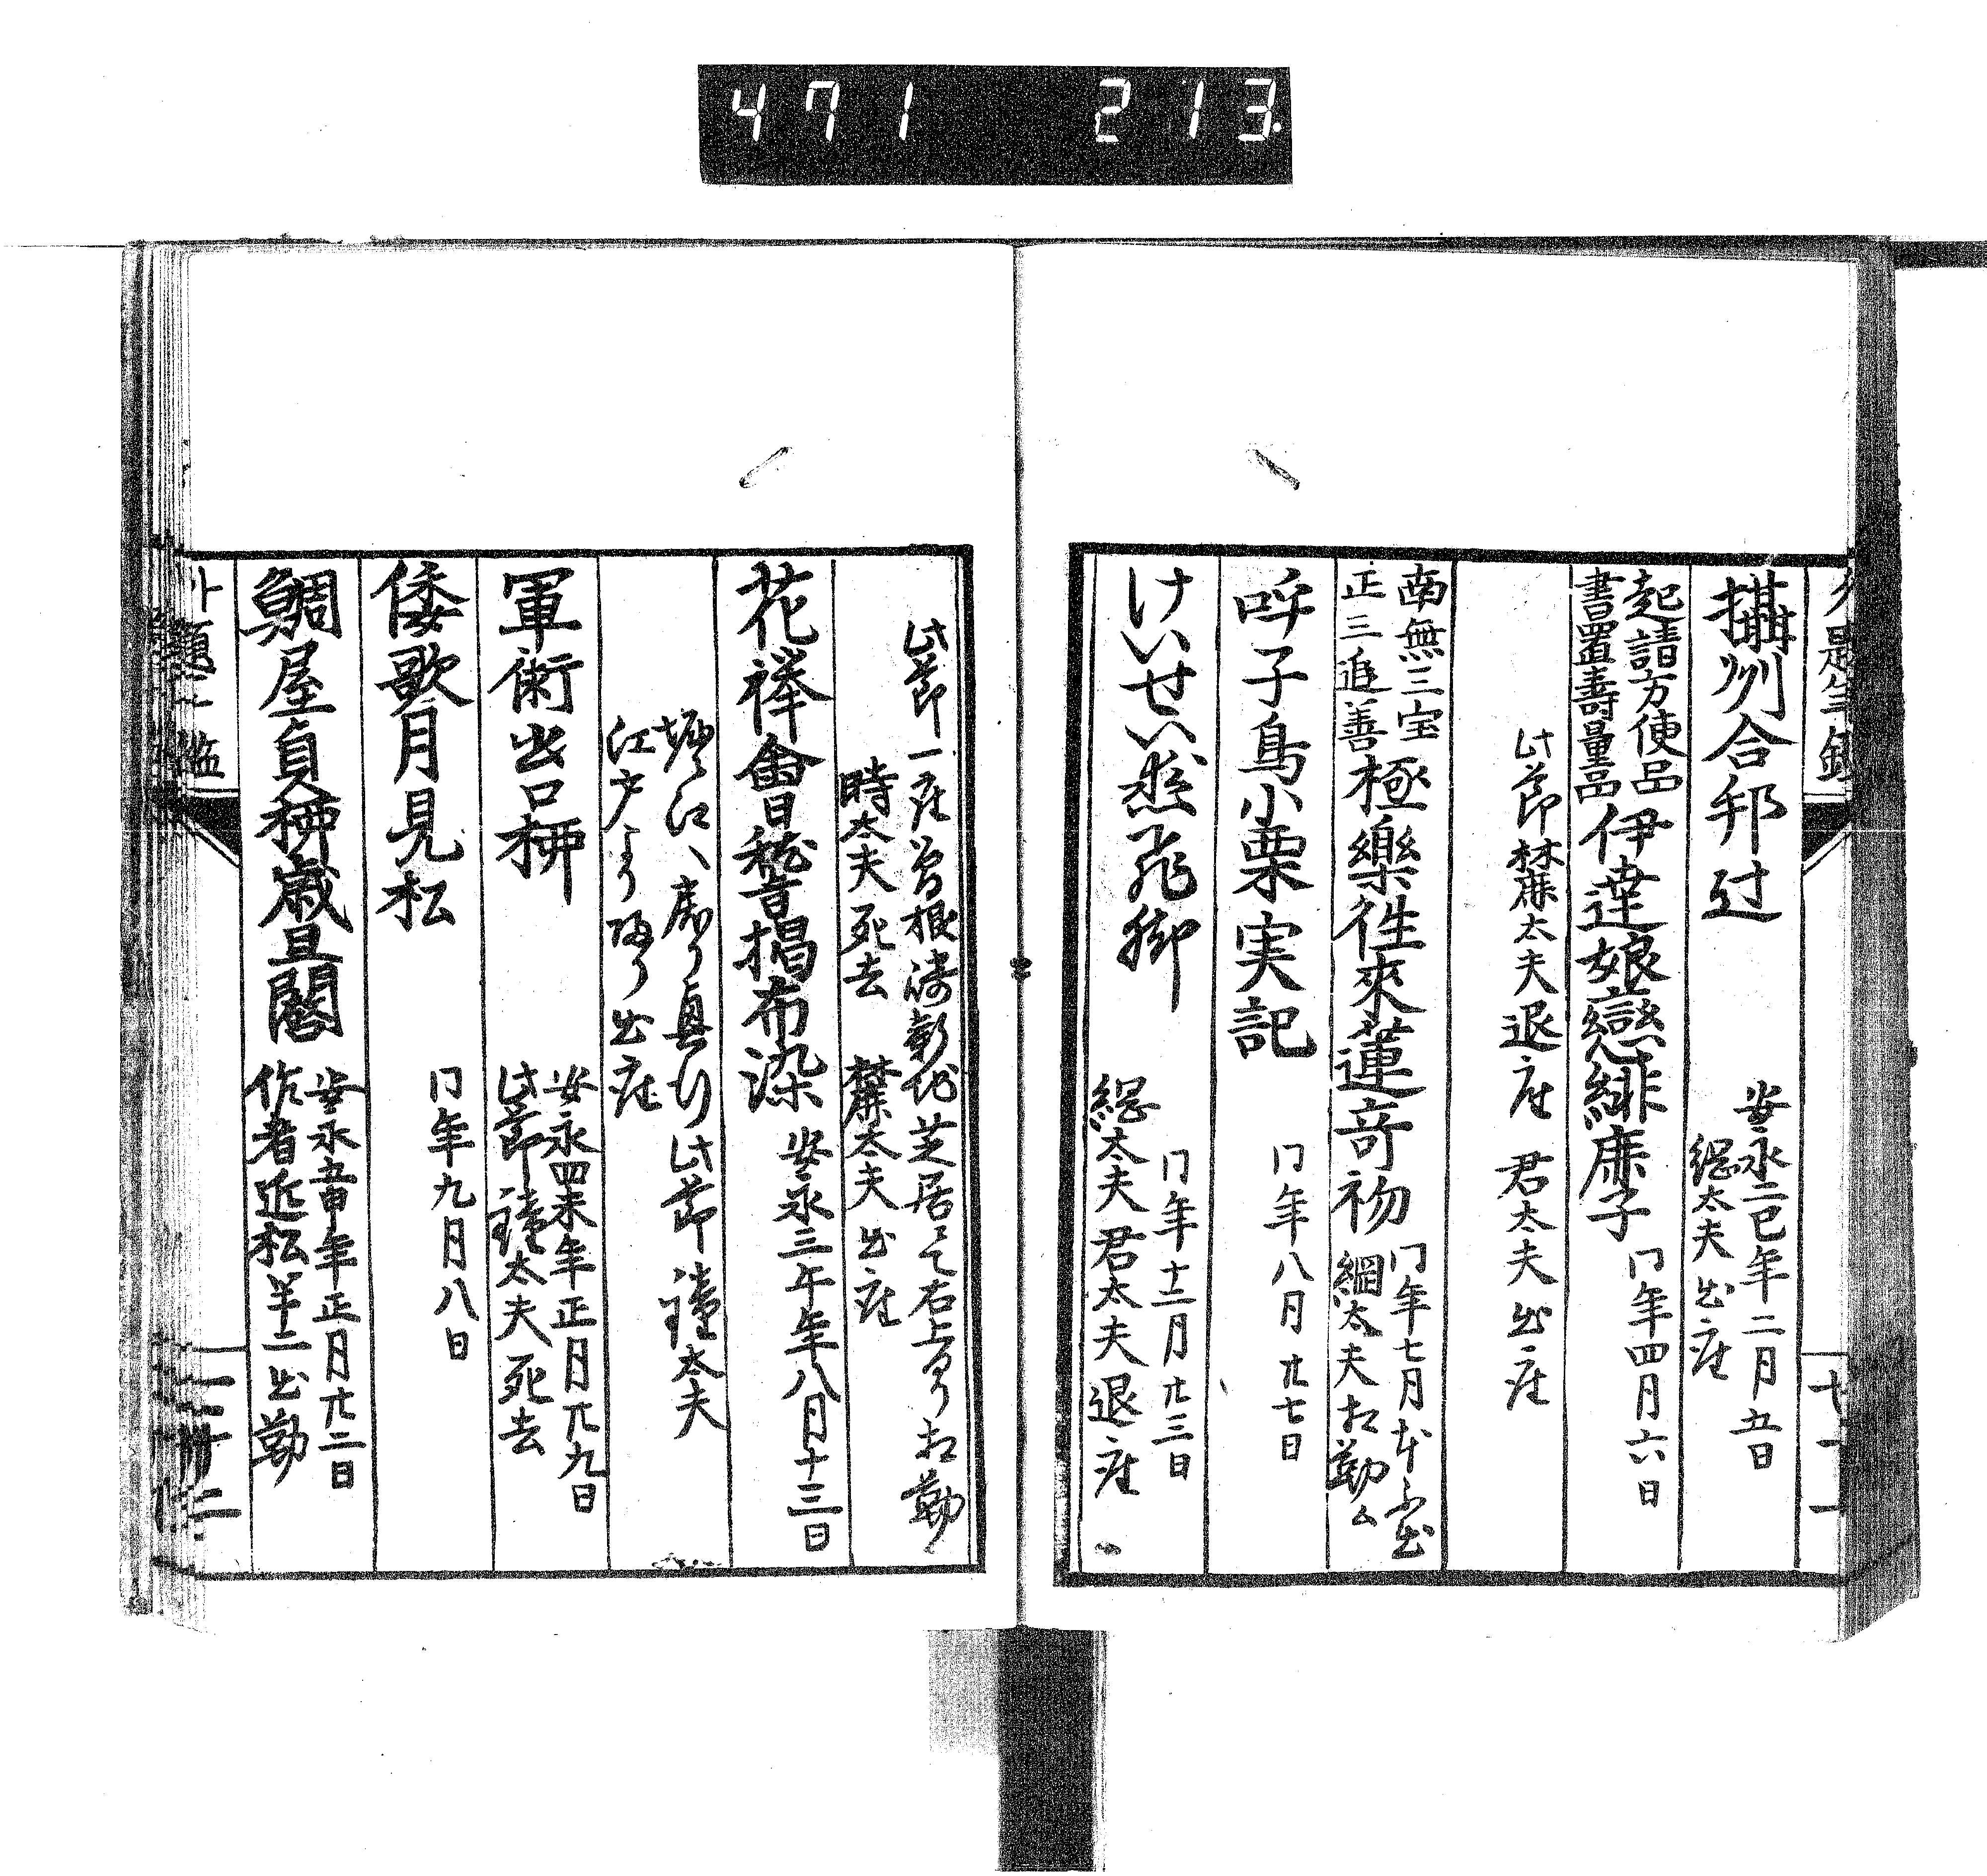 471 213
攝州合邦辻
安永二巳年二月五日
綱太夫出座
起請方便品
書置壽量品
伊達娘戀緋鹿子
同年四月六日
此節 梺太夫退座 君太夫出座
南無三宝
正三追善
極樂徃來蓮奇初
同年七月 本ニ出
綱太夫相勤ム
呼子鳥小栗実記
同年八月廿七日
けいせい恋飛脚
同年十二月廿三日
綱太夫君太夫退座
此節一座曽根崎新地芝居ニて右上るり相勤
時太夫死去 麓太夫出座
花襷會稽掲布染
安永三午年八月十三日
堀江へ戻り興行此節鐘太夫
江戸より帰り出座
軍術出口柳
安永四未年正月廿九日
此節鐘太夫死去
倭歌月見松
同年九月八日
鯛屋貞柳歳旦閣
安永五申年正月廿二日
作者近松半二出勤